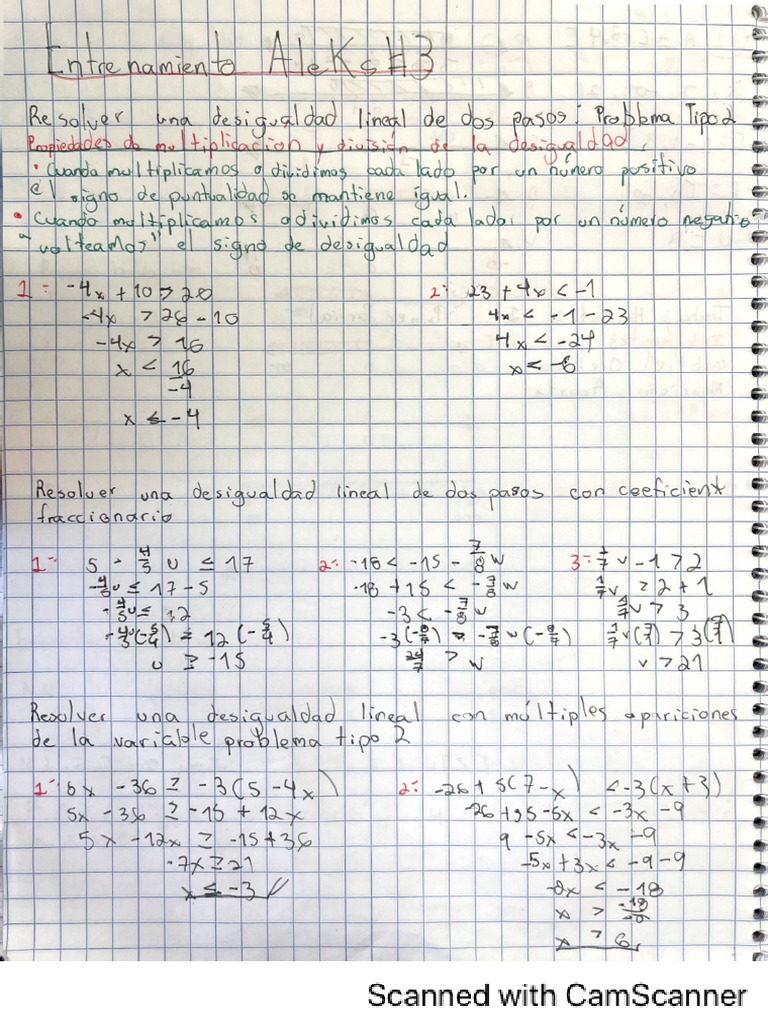 Entrenamiento Aleks #3
Resolver una desigualdad lineal de dos pasos: Problema Tipo 2
Propiedades de multiplicacion y división de la desigualdad.
• Cuando multiplicamos o dividimos cada lado por un número positivo
el signo de puntualidad se mantiene igual.
• Cuando multiplicamos o dividimos cada lado por un número negatio
"volteamos" el signo de desigualdad
1 = -4x + 10 > 26
-4x > 26 - 10
-4x > 16
x < 16/-4
x < -4
2: 23 + 4x < -1
4x < -1 - 23
4x < -24
x < -6
Resolver una desigualdad lineal de dos pasos con coeficient
fraccionario
1= 5 - 4/5 u ≤ 17
-4/5 u ≤ 17 - 5
-4/5 u ≤ 12
-4/5(-5/4) ≥ 12(-5/4)
u ≥ -15
2= -18 < -15 - 7/8 w
-18 + 15 < -7/8 w
-3 < -7/8 w
-3(-8/7) > -7/8 w(-8/7)
24/7 > w
3= 1/7 v - 1 > 2
1/7 v > 2 + 1
1/7 v > 3
1/7 v(7/1) > 3(7/1)
v > 21
Resolver una desigualdad lineal con múltiples apariciones
de la variable problema tipo 2
1- 5x - 36 ≥ -3(5 - 4x)
5x - 36 ≥ -15 + 12x
5x - 12x ≥ -15 + 36
-7x ≥ 21
x ≤ -3
2: -26 + 5(7 - x) < -3(x + 3)
-26 + 35 - 5x < -3x - 9
9 - 5x < -3x - 9
-5x + 3x < -9 - 9
-2x < -18
x > -18/-2
Scanned with CamScanner